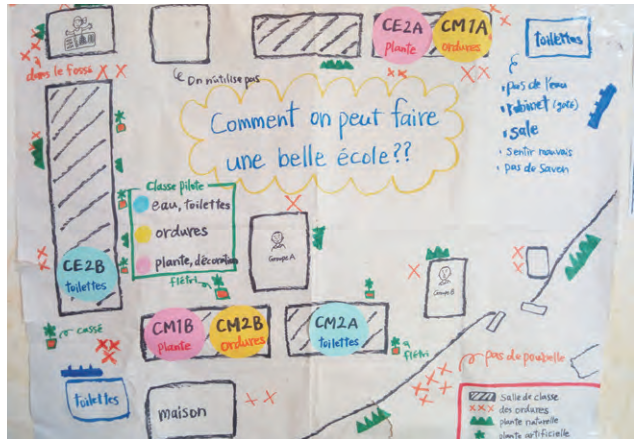 CE2A
plante
CM1A
ordures
toilettes
dans le fossé
On n'utilise pas
• pas de l'eau
• robinet (gaté)
• sale
• sentir mauvais
• pas de savon
Comment on peut faire
une belle école??
Classe pilote
eau, toilettes
ordures
plante, décoration
Groupe A
Groupe B
CE2B
toilettes
flétri
cassé
CM1B
plante
CM2B
ordures
CM2A
toilettes
flétri
pas de poubelle
toilettes
maison
Salle de classe
des ordures
plante naturelle
plante artificielle